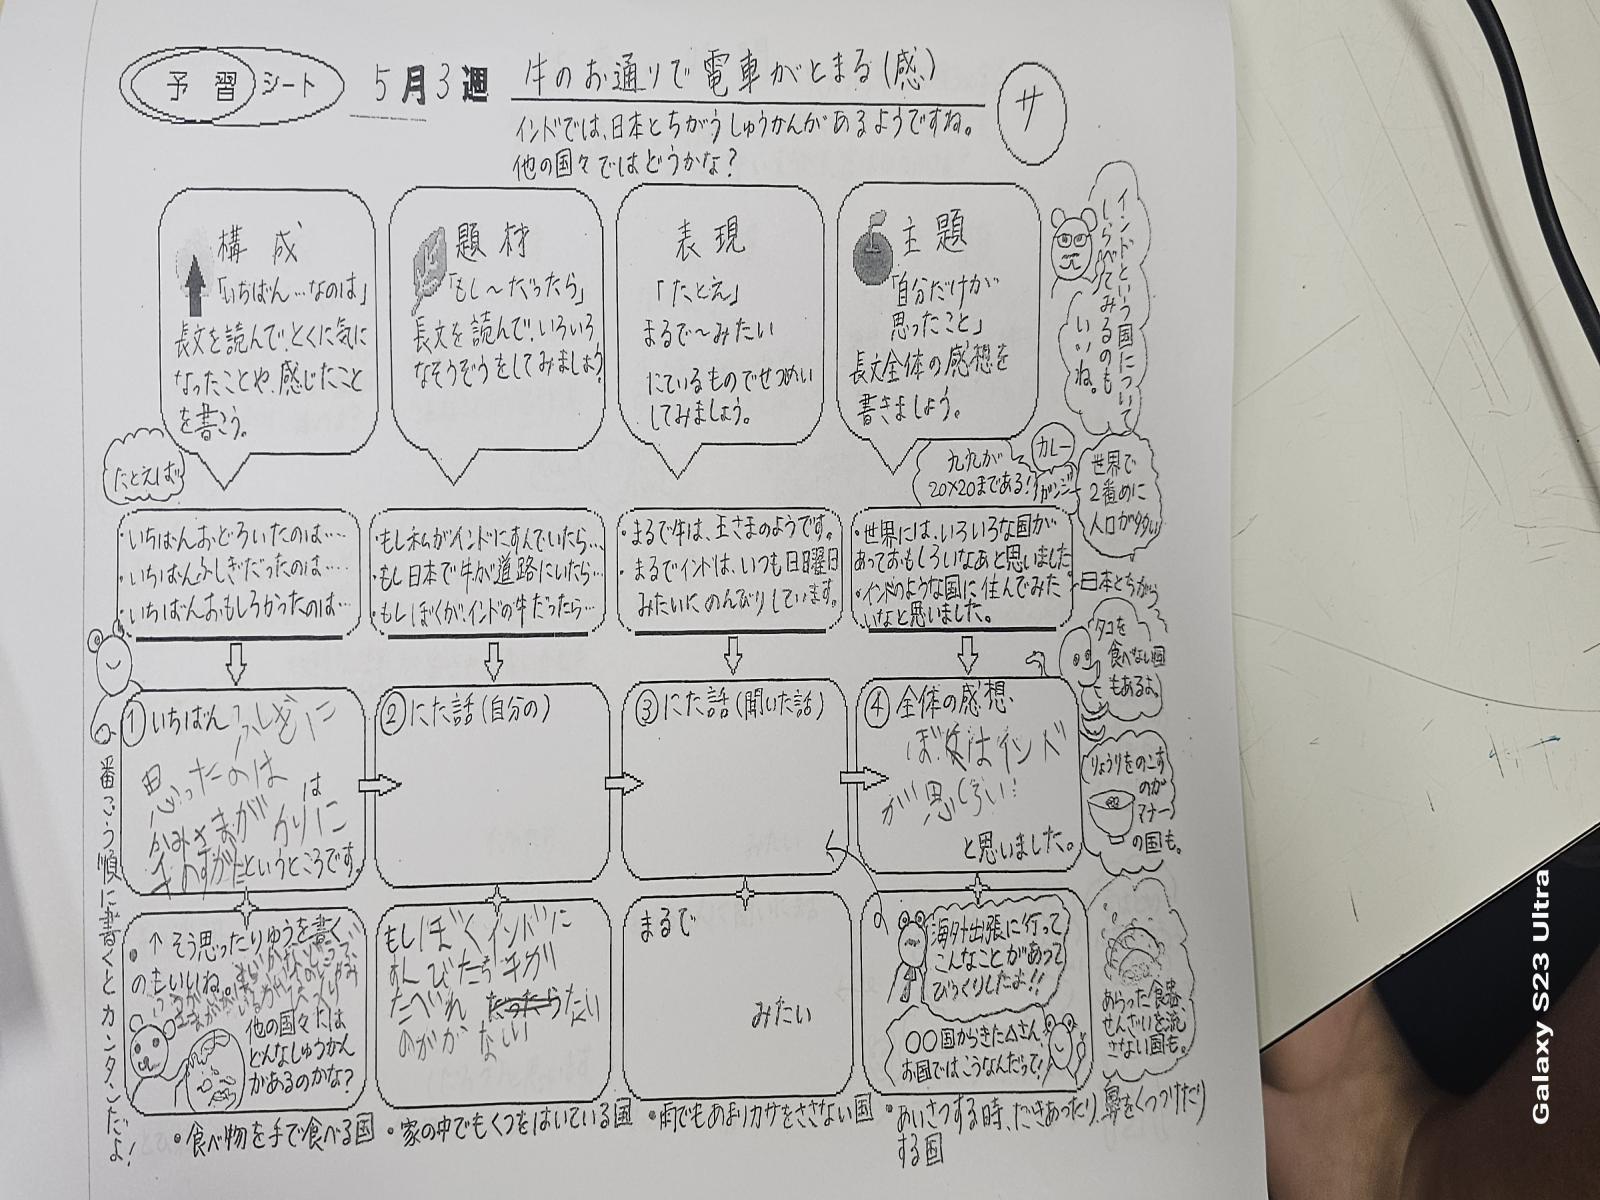 予習シート
5月3週
牛のお通りで電車がとまる(感)
サ
インドでは、日本とちがうしゅうかんがあるようですね。
他の国々ではどうかな?
構成
「いちばん…なのは」
長文を読んで、とくに気に
なったことや、感じたこと
を書こう。
題材
「もし〜だったら」
長文を読んで、いろいろ
なそうぞうをしてみましょう
表現
「たとえ」
まるで〜みたい
にているものでせつめい
してみましょう。
主題
「自分だけが
思ったこと」
長文全体の感想を
書きましょう。
インドという国について
しらべてみるのも
いいね。
たとえば
九九が
20×20まである!
カレー
ガンジー
世界で
2番めに
人口が多い
・いちばんおどろいたのは……
・いちばんふしぎだったのは……
・いちばんおもしろかったのは…
・もし私がインドにすんでいたら…
・もし日本で牛が道路にいたら…
・もしぼくが、インドの牛だったら…
・まるで牛は、王さまのようです。
・まるでインドは、いつも日曜日
みたいにのんびりしています。
・世界には、いろいろな国が
あっておもしろいなあと思いました
・インドのような国に住んでみた
いなと思いました。
日本とちがう
タコを
食べない国
もあるよ。
①いちばんふしぎに
思ったのは
かみさまが
というところです。
②にた話(自分の)
③にた話(聞いた話)
④全体の感想、
ぼくはインド
が
と思いました。
りょうりをのこす
のが
マナー
の国も。
一番ごう順に書くとカンタンだよ!
↑そう思ったりゆうを書く
のもいいね。
他の国々では
どんなしゅうかん
があるのかな?
もしぼくインドに
まるで
みたい
海外出張に行って
こんなことがあって
びっくりしたよ!!
○○国からきた△さん、
お国ではこうなんだって!
あらった食器、
せんざいを流
さない国も。
・食べ物を手で食べる国
・家の中でもくつをはいている国
・雨でもあまりカサをささない国
・あいさつする時、だきあったり、鼻をくっつけたり
する国
Galaxy S23 Ultra